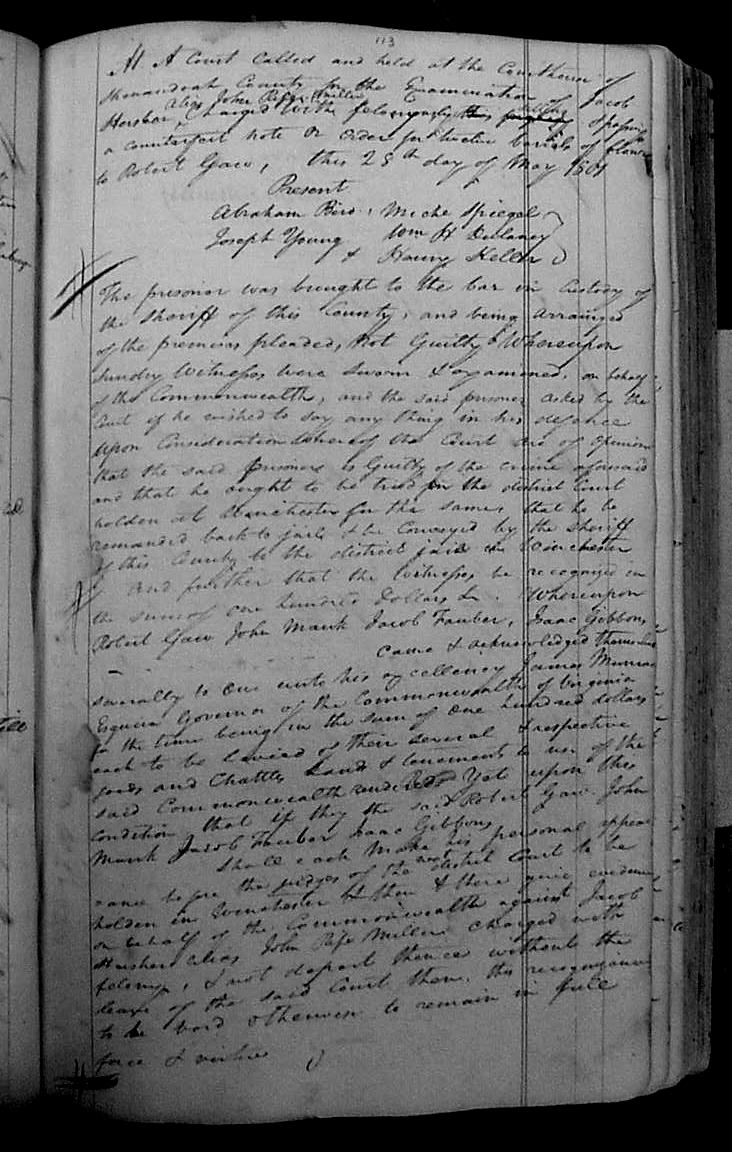 113
At A Court Called and held at the Courthouse of
Shenandoah County for the Examination of Jacob
alias John Pifer Miller
Hersher Charged with feloniously this passing
a counterfeit note or order for twelve barrels of flower
to Robert Gaw, this 28th day of May 1801
Present
Abraham Bird, Miche Spiegel
Joseph Young Wm H Dulaney
& Henry Keller
The prisoner was brought to the bar in Custody of
the Sheriff of this County, and being arraigned
of the premises pleaded, Not Guilty Whereupon
Sundry Witnesses were Sworn & examined, on behalf
of the Commonwealth, and the said prisoner asked by the
Court if he wished to say any thing in his defence
upon Consideration whereof the Court are of opinion
that the said prisoner is Guilty of the crime aforesaid
and that he ought to be tried for the district Court
holden at Winchester for the same, that he be
remanded back to jail & be Conveyed by the Sheriff
of this County to the district jail in Winchester
And further that the Witnesses be recognized in
the sum of one hundred Dollars &c. Whereupon
Robert Gaw John Mauk Jacob Fauber, Isaac Gibbons
came & acknowledged themselves
severally to owe unto his excellency James Munroe
Esquire Governor of the Commonwealth of Virginia
for the time being in the sum of one hundred dollars
each to be levied of their several & respective
goods and Chattles Lands & tenements to use of the
said Commonwealth rendered Yet upon this
Condition that if they the said Robert Gaw John
Mauk Jacob Fauber Isaac Gibbons
Shall each make his personal appear
ance before the judges of the next district Court to be
holden in Winchester then & there give evidence
on behalf of the Commonwealth against Jacob
Hersher alias John Pifer Miller Charged with
felony, & not depart thence without the
leave of the said Court then, this recognizance
to be void otherwise to remain in full
force & virtue